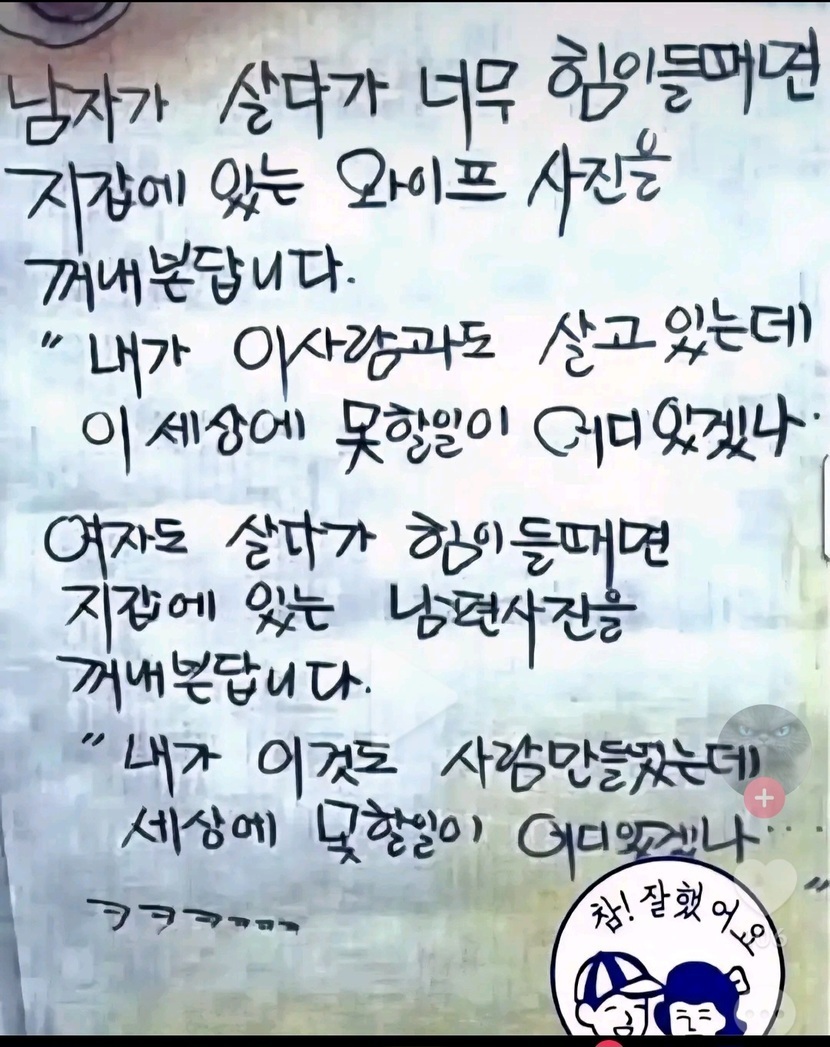 남자가 살다가 너무 힘이들때면
지갑에 있는 와이프 사진을
꺼내본답니다.
" 내가 이사람과도 살고 있는데
이 세상에 못할일이 어디 있겠나..
여자도 살다가 힘이 들때면
지갑에 있는 남편사진을
꺼내본답니다.
" 내가 이것도 사람만들었는데
세상에 못할일이 어디있겠나...
"
ㅋㅋㅋㅋㅋㅋ
참! 잘했어요